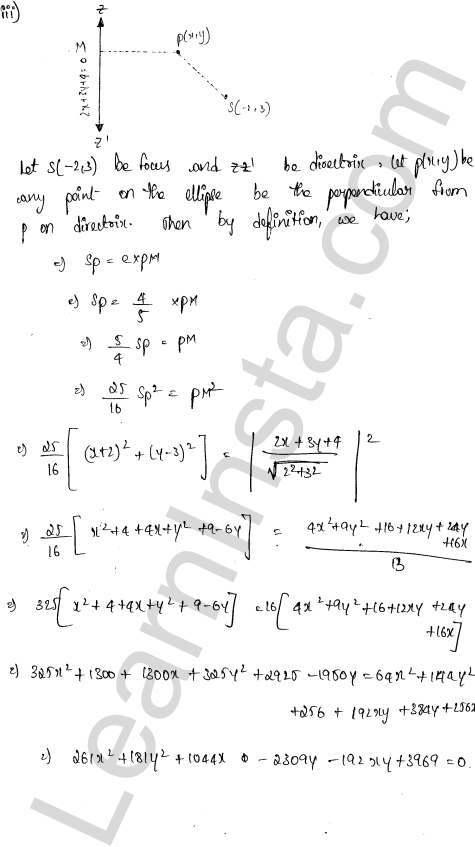 iii)
Z
M
P(x,y)
2x+3y+4=0
S(-2,3)
Z'
Let S(-2,3) be focus and ZZ' be directrix, let p(x,y) be
any point on the ellipse be the perpendicular from
p on directrix. Then by definition, we have;
⇒ SP = e×PM
⇒ SP = 4/5 ×PM
⇒ 5/4 SP = PM
⇒ 25/16 SP² = PM²
⇒ 25/16 [(x+2)² + (y-3)²] = |2x+3y+4 / √2²+3²|²
⇒ 25/16 [x²+4+4x+y²+9-6y] = 4x²+9y²+16+12xy+24y+16x / 13
⇒ 325[x²+4+4x+y²+9-6y] = 16[4x²+9y²+16+12xy+24y
+16x]
⇒ 325x²+1300+1300x+325y²+2925-1950y=64x²+144y²
+256+192xy+384y+256x
⇒ 261x²+181y²+1044x - 2309y - 192xy+3969=0.
LearnInsta.com